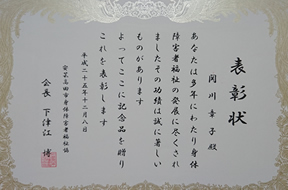 表彰状
関川幸子殿
あなたは多年にわたり身体
障害者福祉の発展に尽くされ
ましたその功績は誠に著しい
ものがあります
よってここに記念品を贈り
これを表彰します
平成二十五年十二月八日
安芸高田市身体障害者福祉協
会長 下津江 博